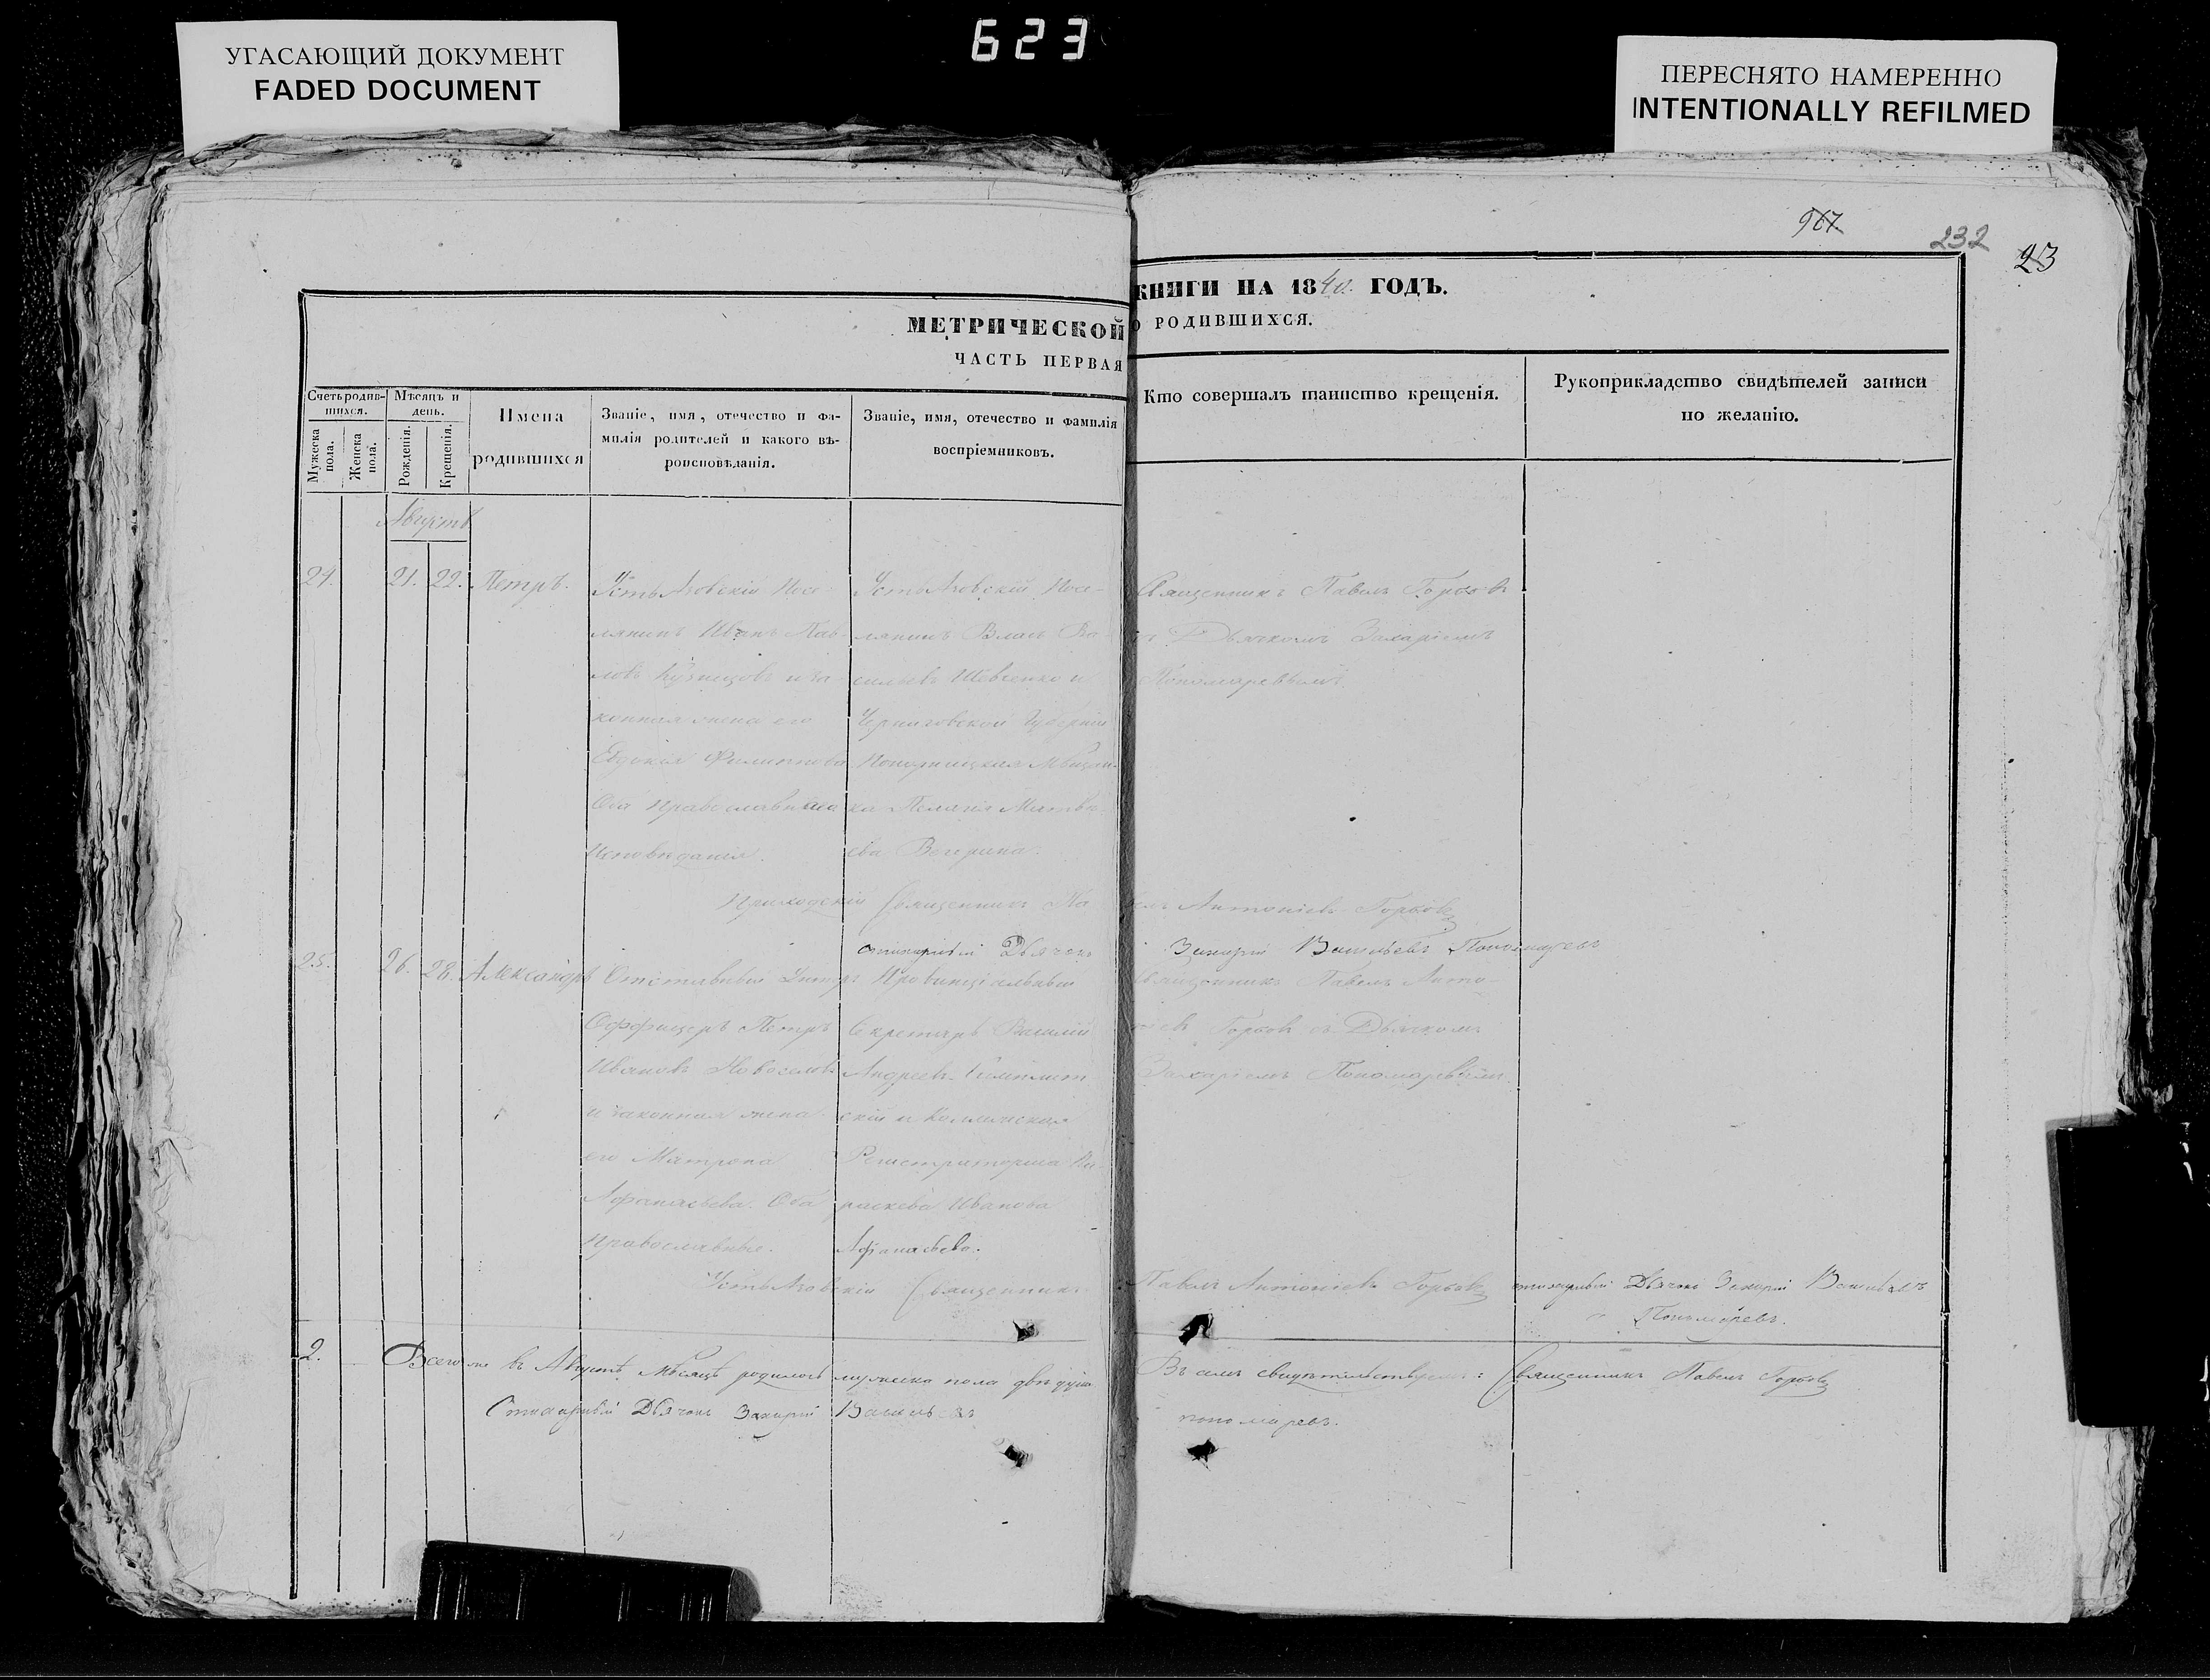 623
УГАСАЮЩИЙ ДОКУМЕНТ
FADED DOCUMENT
ПЕРЕСНЯТО НАМЕРЕННО
INTENTIONALLY REFILMED
967.
232
23
МЕТРИЧЕСКОЙ
ЧАСТЬ ПЕРВАЯ
КНИГИ НА 1840. ГОДЪ.
О РОДИВШИХСЯ.
Счетъ родив-
шихся.
Мужеска пола.
Женска пола.
Мѣсяцъ и
день.
Рожденія.
Крещенія.
Имена
родившихся
Званіе, имя, отечество и фа-
милія родителей и какого вѣ-
роисповѣданія.
Званіе, имя, отечество и фамилія
воспріемниковъ.
Кто совершалъ таинство крещенія.
Рукоприкладство свидѣтелей записи
по желанію.
Августъ
24.
21.
22.
Петръ.
Посе-
лянинъ Иванъ Пав-
ловъ Кузнецовъ и за-
конная жена его
Евдокія Филиппова
Оба Православнаго
Исповѣданія.
Посе-
лянинъ Власъ Ва-
сильевъ Шевченко и
Черниговской Губерніи
Мѣщан-
ка Пелагія Матвѣ-
ева
Священникъ Павелъ Горбовъ
съ Дьячкомъ Захаріемъ
Пономаревымъ.
Приходскій Священникъ Па
велъ Антоніевъ Горбовъ
Стихарный Дьячокъ
Захарій Васильевъ Пономаревъ
25.
26.
28.
Александръ
Отставный Унтеръ
Оффицеръ Петръ
Ивановъ Новоселовъ
и законная жена
его Матрона
Афанасьева. Оба
Православные.
Провинціальный
Секретарь Василій
Андреевъ
скій и Коллежская
Регистраторша Па-
раскева Иванова
Афанасьева.
Священникъ Павелъ Анто-
ніевъ Горбовъ съ Дьячкомъ
Захаріемъ Пономаревымъ.
Священникъ
Павелъ Антоніевъ Горбовъ
стихарный Дьячокъ Захарій Васильевъ
Пономаревъ.
2.
Всего въ Августѣ мѣсяцѣ родилось мужеска пола двѣ души
Въ семъ свидѣтельствуемъ: Священникъ Павелъ Горбовъ
Стихарный Дьячокъ Захарій Васильевъ
пономаревъ.